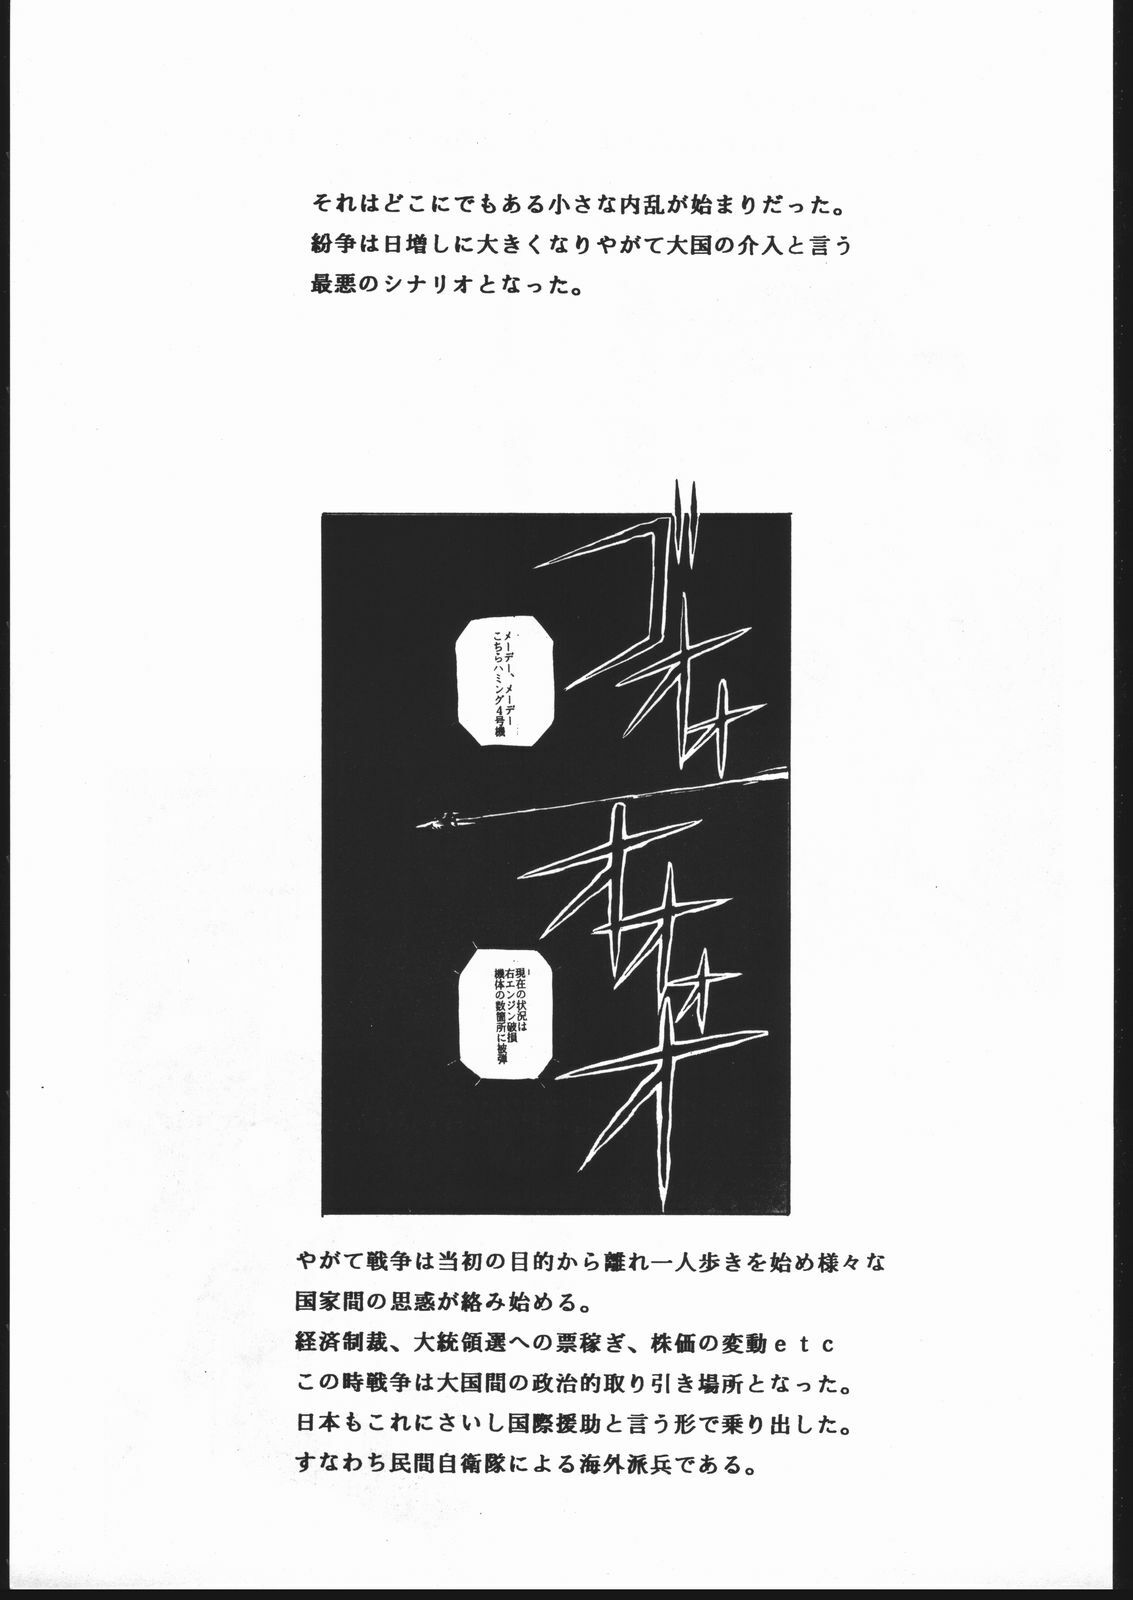 それはどこにでもある小さな内乱が始まりだった。
紛争は日増しに大きくなりやがて大国の介入と言う
最悪のシナリオとなった。
ゴオォ
メーデー、メーデー…
こちらハミング4号機
オオォオ
現在の状況は
右エンジン破損
機体の数箇所に被弾
やがて戦争は当初の目的から離れ一人歩きを始め様々な
国家間の思惑が絡み始める。
経済制裁、大統領選への票稼ぎ、株価の変動ｅｔｃ
この時戦争は大国間の政治的取り引き場所となった。
日本もこれにさいし国際援助と言う形で乗り出した。
すなわち民間自衛隊による海外派兵である。